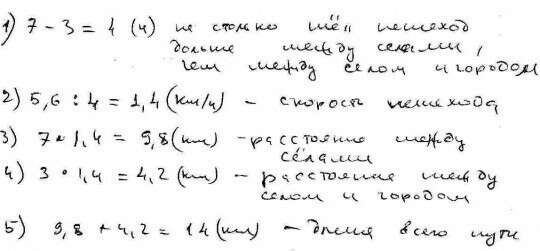 1) 7 - 3 = 4 (ч) на столько шёл пешеход
дольше между селами,
чем между селом и городом
2) 5,6 : 4 = 1,4 (км/ч) - скорость пешехода
3) 7 • 1,4 = 9,8 (км) - расстояние между
сёлами
4) 3 • 1,4 = 4,2 (км) - расстояние между
селом и городом
5) 9,8 + 4,2 = 14 (км) - длина всего пути